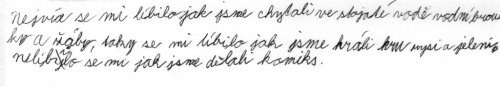 nejvíc se mi líbilo jak jsme chytali ve stojaté vodě vodní brou
ky a žáby, taky se mi líbilo jak jsme hráli hru mysi a jelení,
nelíbilo se mi jak jsme dělali komiks.